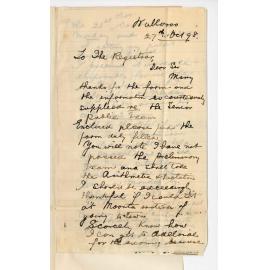 Wallaroo
27th Oct 98.
To The Registrar
Dear Sir
Many
thanks for the form and
the information so courteously
supplied re the Senior
Public Exam
Enclosed please find the
form duly filled
You will note I have not
passed the preliminary
exam and shall take
the Arithmetic
I should be exceedingly
thankful if I could sit
at Moonta instead of
going to town
I scarcely know how
I can get to Adelaide
for the